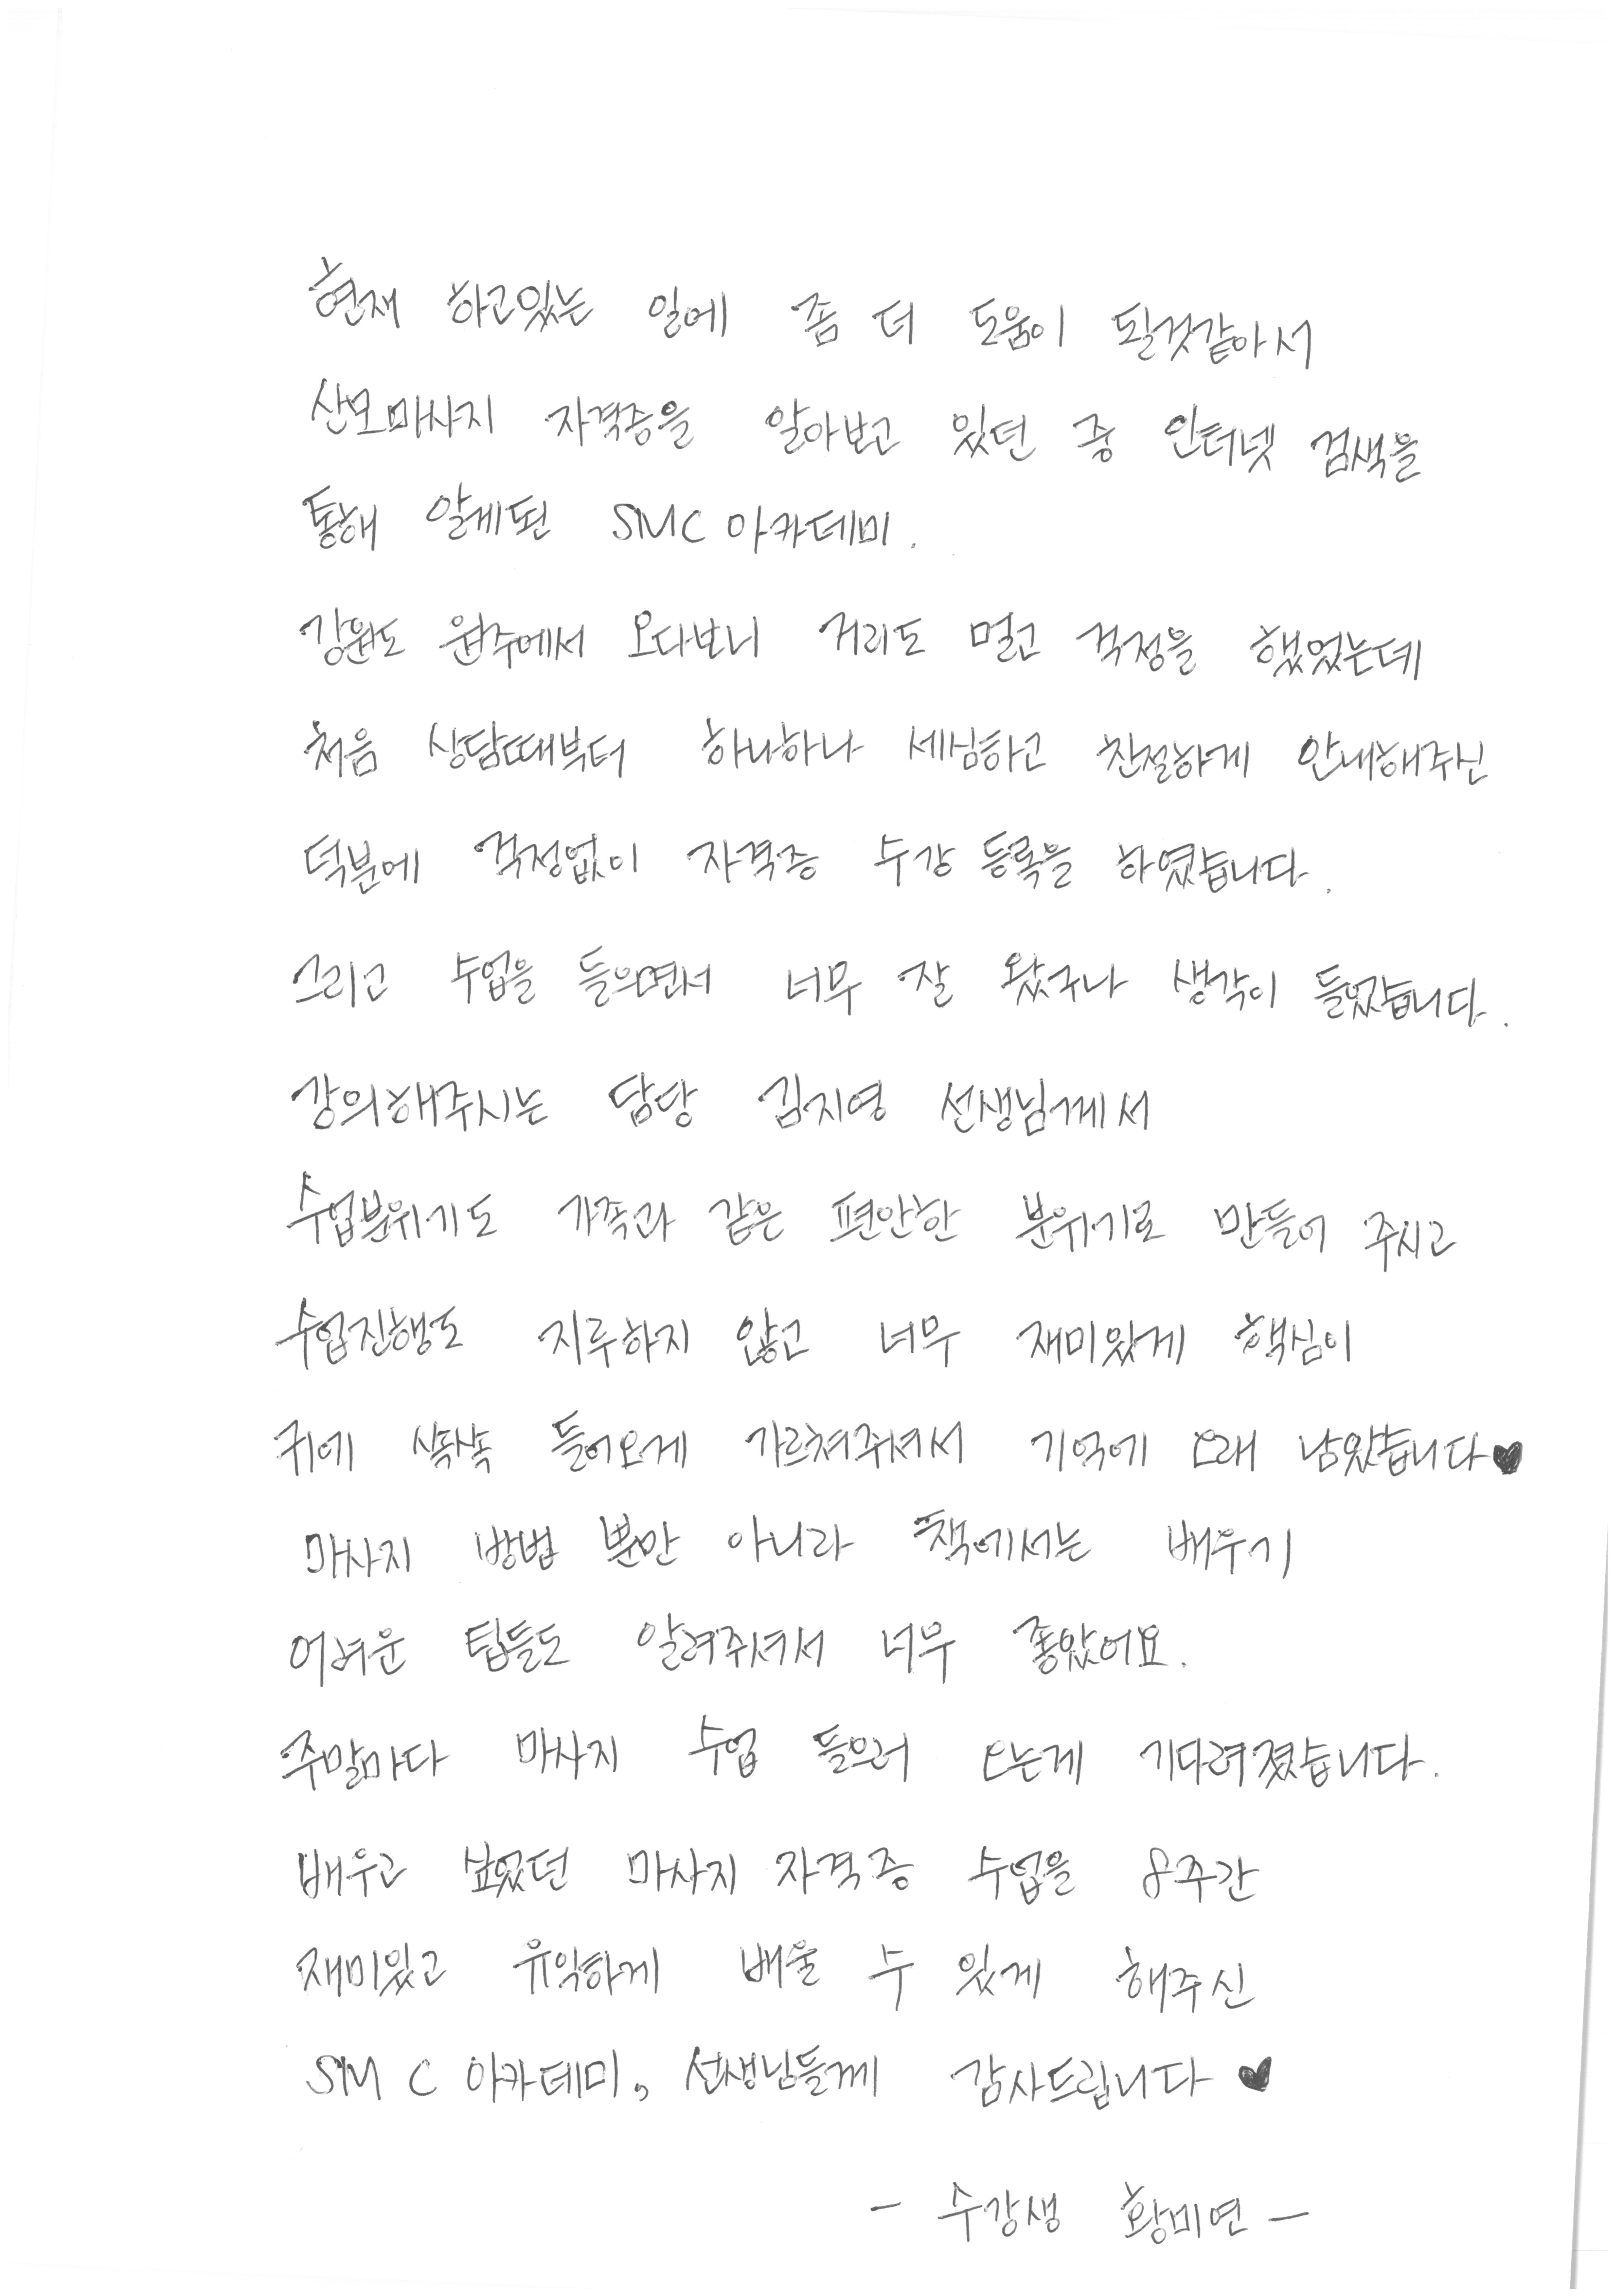 현재 하고있는 일에 좀 더 도움이 될것같아서
산모마사지 자격증을 알아보고 있던 중 인터넷 검색을
통해 알게된 SMC 아카데미.
강원도 원주에서 오다보니 거리도 멀고 걱정을 했었는데
처음 상담때부터 하나하나 세심하고 친절하게 안내해주신
덕분에 걱정없이 자격증 수강 등록을 하였습니다.
그리고 수업을 들으면서 너무 잘 왔구나 생각이 들었습니다.
강의해주시는 담당 김지영 선생님께서
수업분위기도 가족과 같은 편안한 분위기로 만들어 주시고
수업진행도 지루하지 않고 너무 재미있게 핵심이
귀에 쏙쏙 들어오게 가르쳐주셔서 기억에 오래 남았습니다♥
마사지 방법 뿐만 아니라 책에서는 배우기
어려운 팁들도 알려주셔서 너무 좋았어요.
주말마다 마사지 수업 들으러 오는게 기다려졌습니다.
배우고 싶었던 마사지 자격증 수업을 8주간
재미있고 유익하게 배울 수 있게 해주신
SMC 아카데미, 선생님들께 감사드립니다 ♥
- 수강생 황미연 -